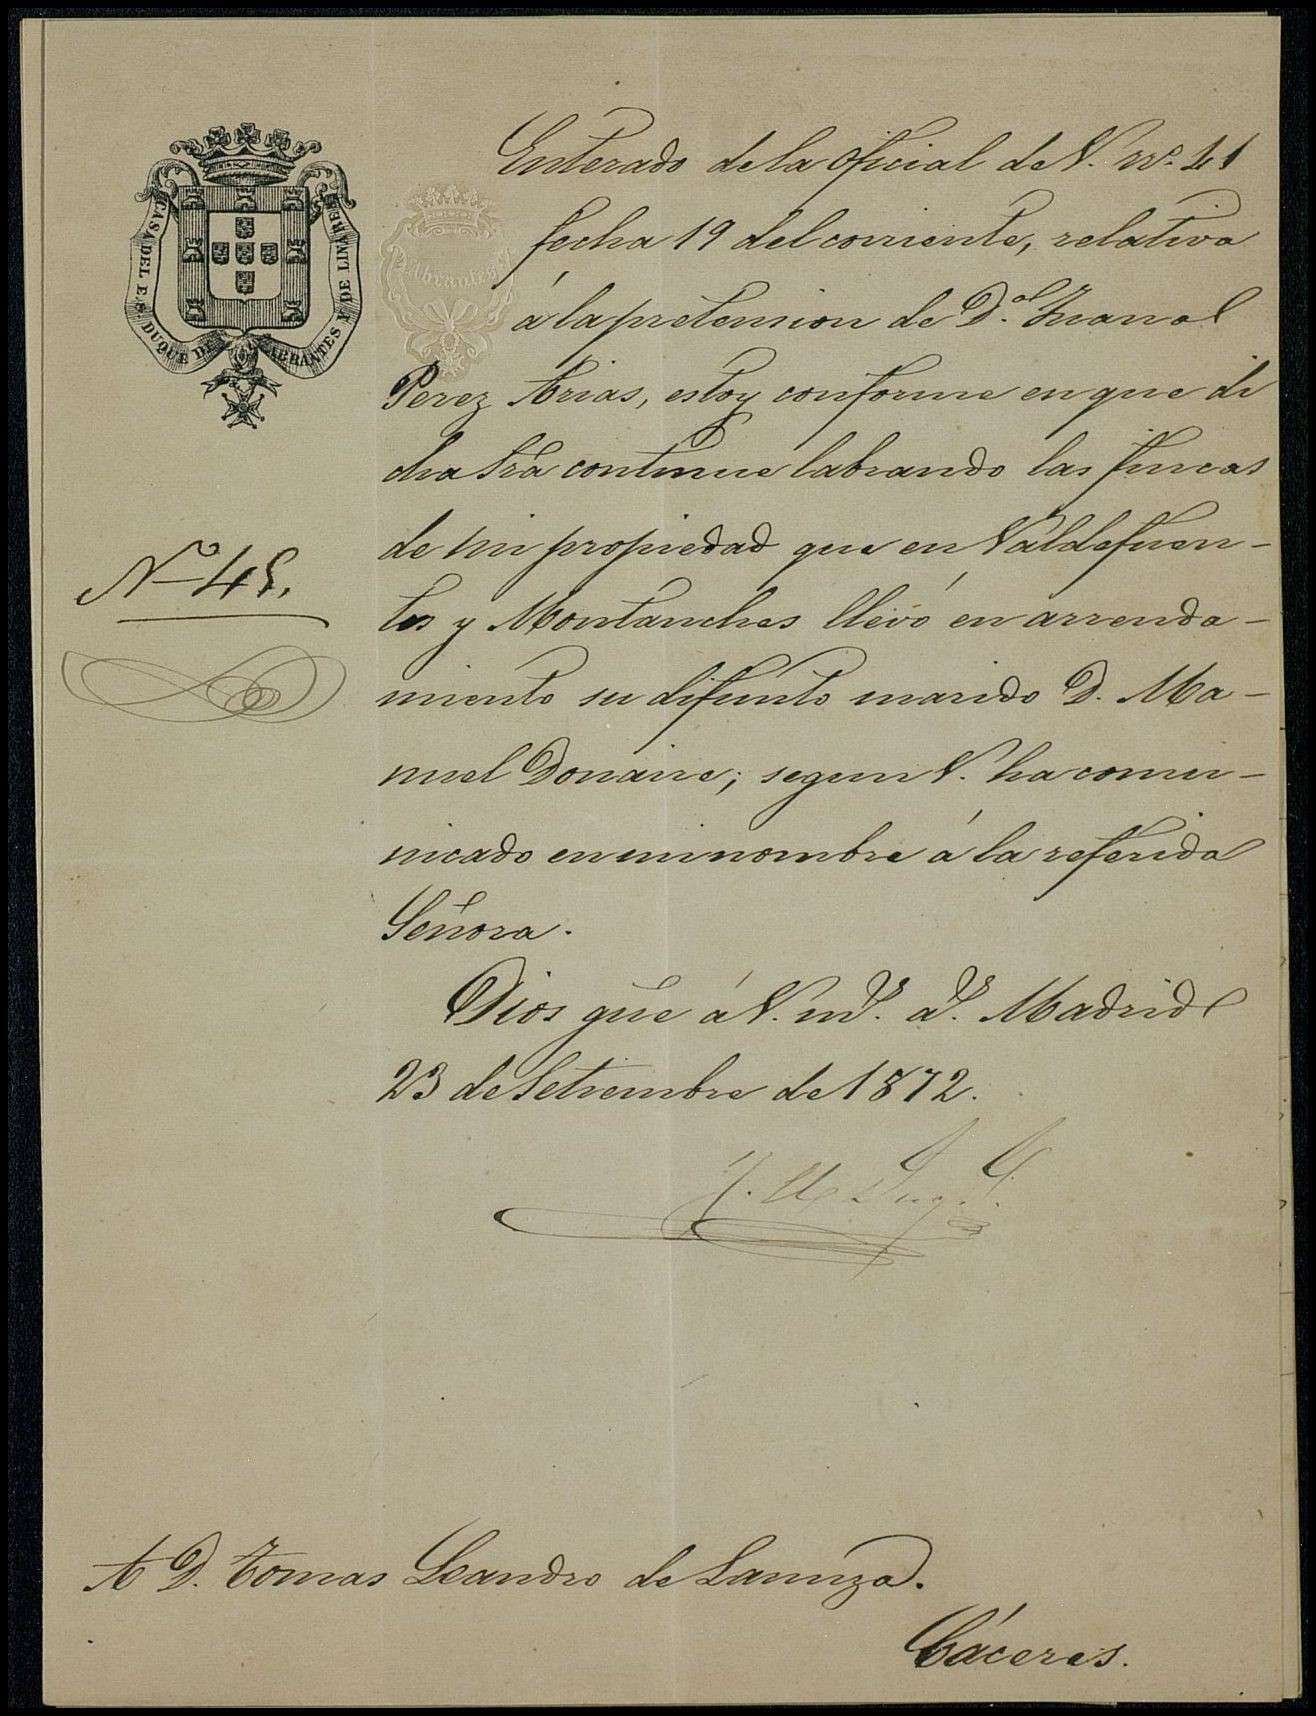 CASA DEL E. S. DUQUE DE ABRANTES Y DE LINARES
Enterado de la oficial de V. nº. 41
fecha 19 del corriente, relativa
á la pretension de D.ª Juana
Perez Arias, estoy conforme en que di
cha Sra continue labrando las fincas
de mi propiedad que en Valdefuen-
Nº 45.
tes y Montanches llevó en arrenda-
miento su difunto marido D. Ma-
nuel Donaire; segun V. ha comu-
nicado en mi nombre á la referida
Señora.
Dios gue á V. ms. as. Madrid
23 de Setiembre de 1872.
A D. Tomas Leandro de Lanuza.
Cáceres.